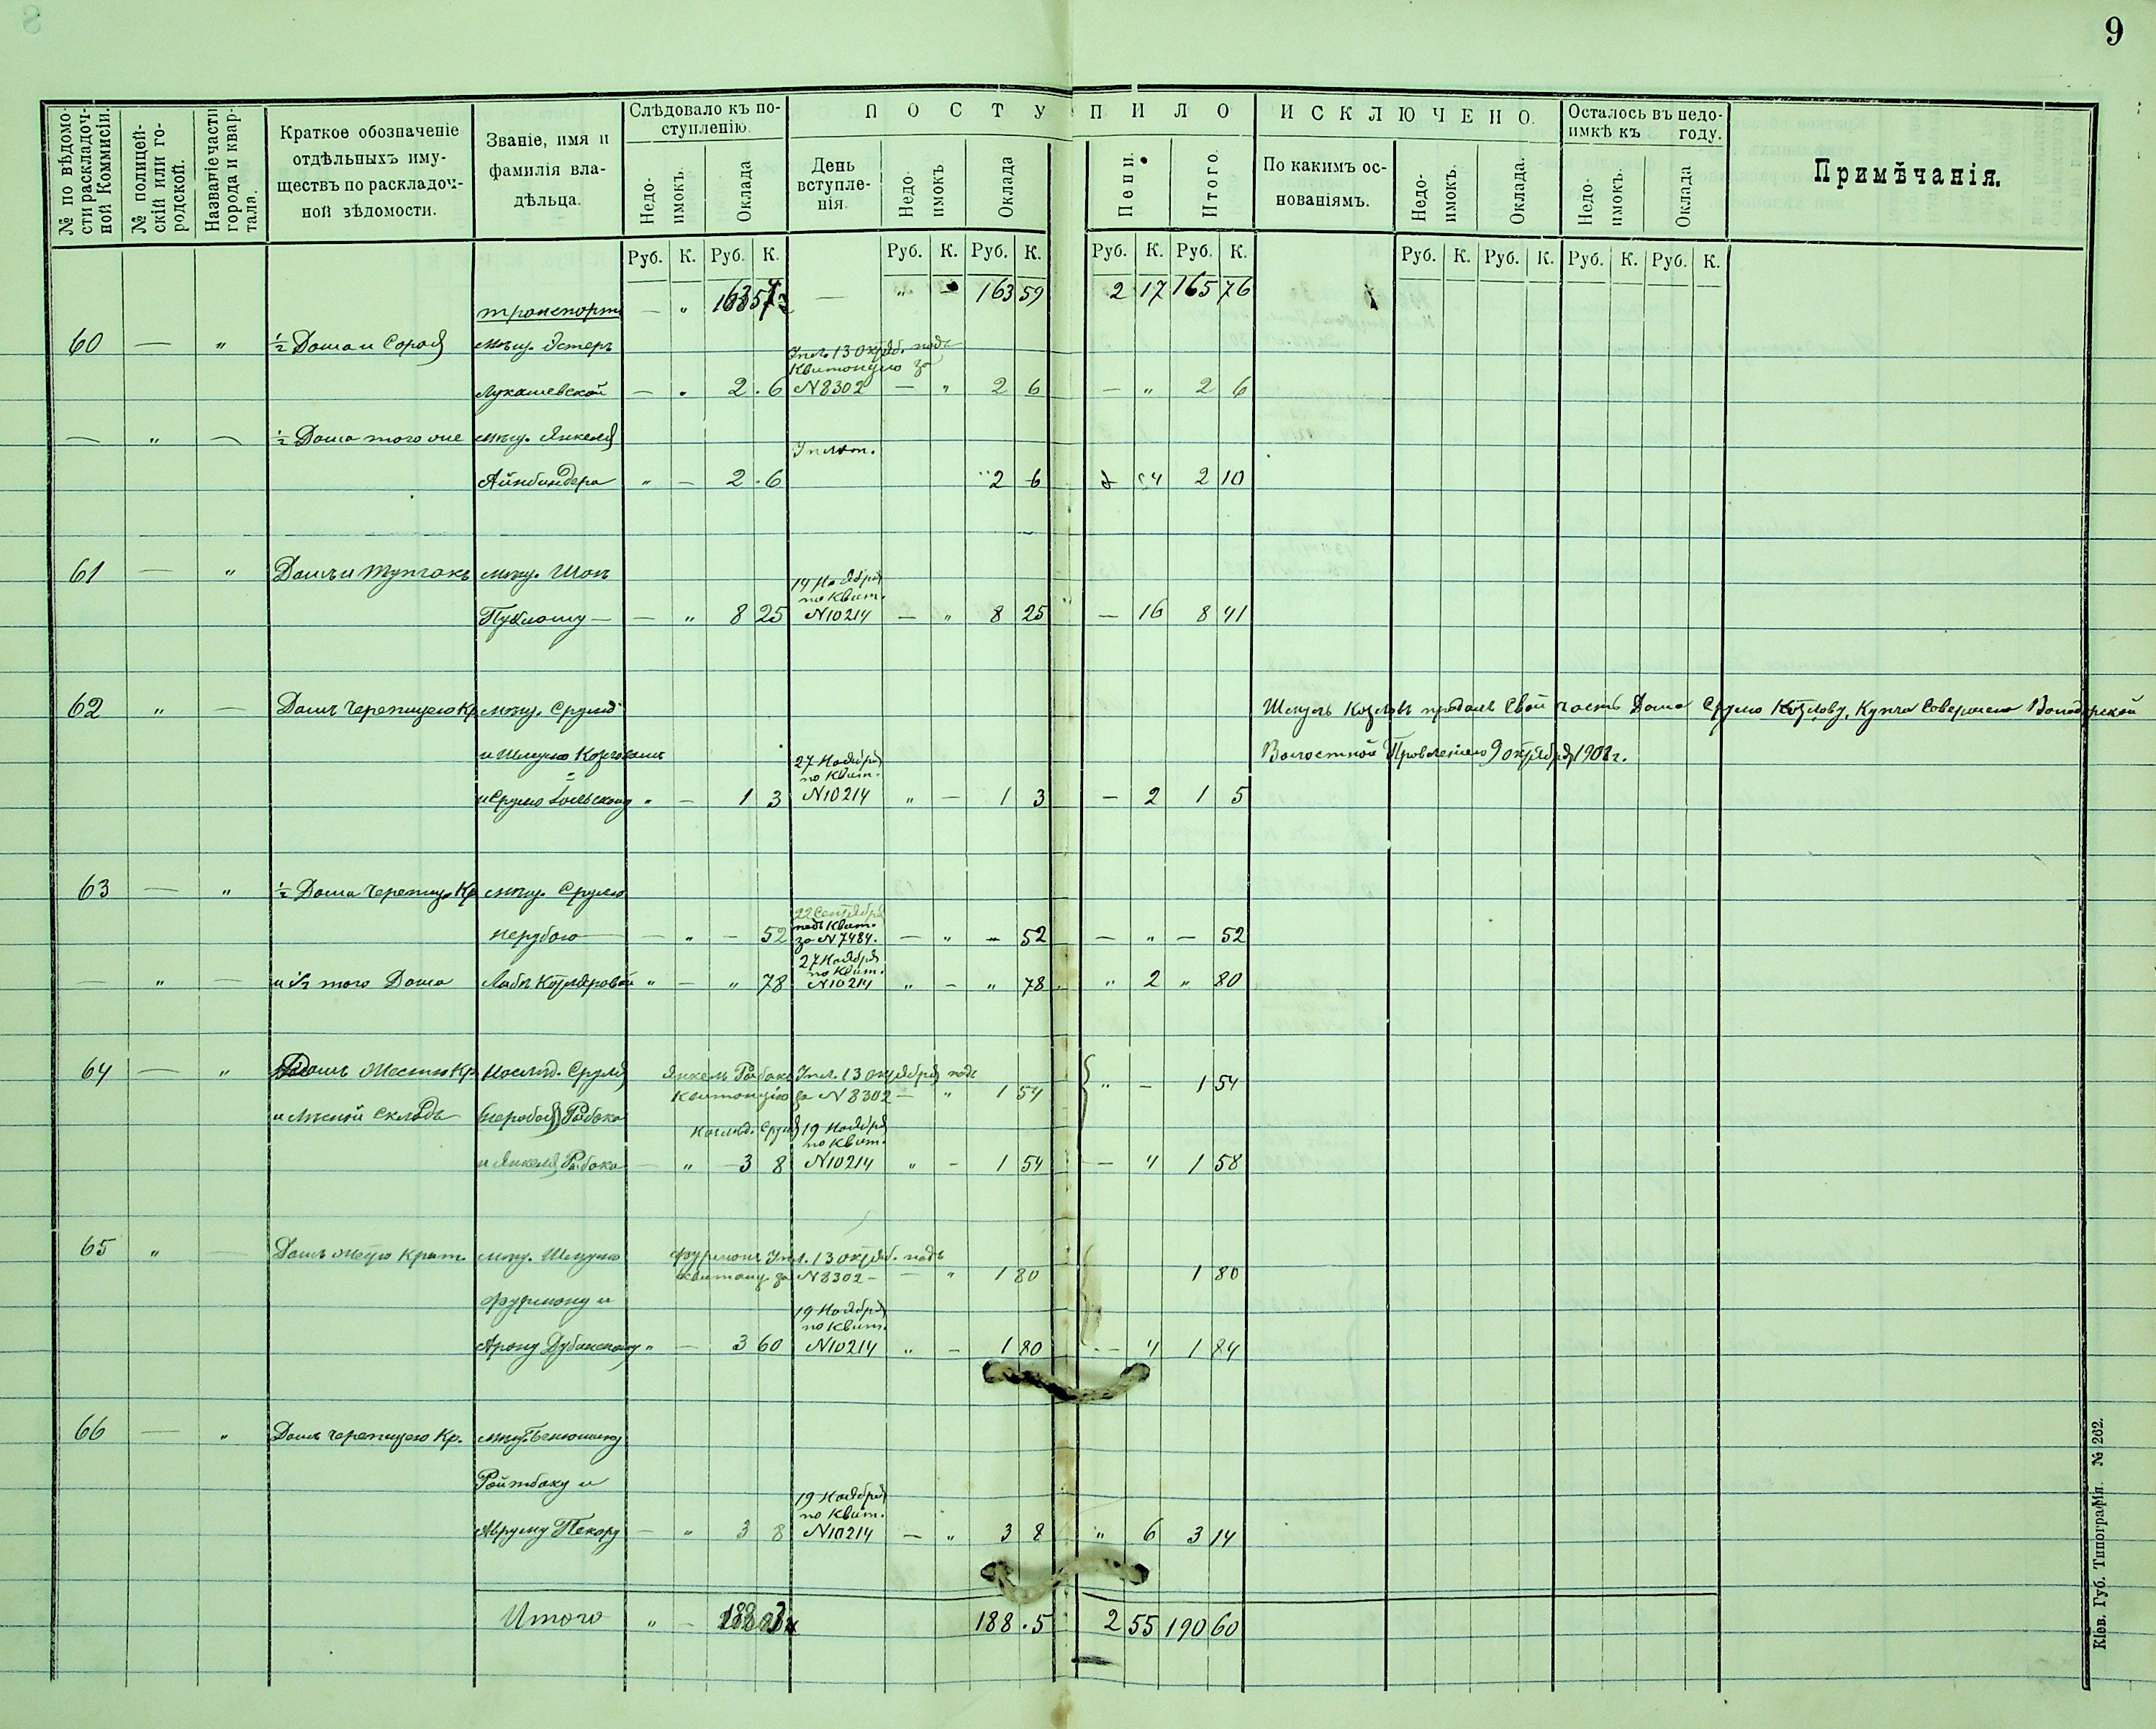 9
№ по вѣдомости раскладочной Коммисіи.
№ полицейскій или городской.
Названіе части города и квартала.
Краткое обозначеніе отдѣльныхъ имуществъ по раскладочной зѣдомости.
Званіе, имя и фамилія владѣльца.
Слѣдовало къ поступленію.
Недоимокъ. Оклада
ПОСТУПИЛО
День вступленія.
Недоимокъ Оклада Пени. Итого.
ИСКЛЮЧЕНО.
По какимъ основаніямъ.
Недоимокъ. Оклада.
Осталось въ недоимкѣ къ году.
Недоимокъ. Оклада
Примѣчанія.
Руб. К. Руб. К. Руб. К. Руб. К. Руб. К. Руб. К. Руб. К. Руб. К. Руб. К. Руб. К.
транспортъ — " — " — 163 59 2 17 165 76
60 — " ½ Дома и Сарая мѣщ. Эстеръ Упл. 13 октяб. подъ
квитанцію за
Лукашевской — " 2 . 6 N 8302 — " 2 6 — " 2 6
— " — ½ Дома того же мѣщ. Янкеля
Айнбиндера " — 2 . 6 2 6 4 2 10
61 — " Домъ и мѣщ. 19 Ноября
по квит.
— — " 8 25 N 10214 — " 8 25 — 16 8 41
62 " — Домъ черепицею кр. мѣщ. Срулю
Шмуль Козловъ продалъ свой часть Дома Срулю Козлову, Купчая совершена
и Шмулю Козловымъ 27 Ноября
по квит.
Волостной Правленіею 9 октября 1901 г.
и Срулю " — 1 3 N 10214 " — 1 3 — 2 1 5
63 — " ½ Дома черепиц. Кр мѣщ. Срулю 22 Сентября
подъ квит.
— " — 52 за N 7484. — " — 52 — " — 52
27 Ноября
по квит.
— " — и ½ того Дома " — " 78 N 10214 " — " 78 " 2 " 80
64 — " Домъ Жестью Кр. Наслѣд. Сруля Янкель Рыбакъ Упл. 13 октября подъ
квитанцію за N 8302 — " 1 54 " — 1 54
и Лѣсной складъ Рыбака Наслѣд. Сруля 19 Ноября
по квит.
и Янкеля Рыбака — " 3 8 N 10214 " — 1 54 — 4 1 58
65 " — Домъ жестью крыт. мѣщ. Шмулю Фурманъ Упл. 13 октяб. подъ
квитанц. за N 8302 — — " 1 80 1 80
Фурману и 19 Ноября
по квит.
Арону Дубинскому " — 3 60 N 10214 " — 1 80 — 4 1 84
66 — " Домъ черепицею Кр. мѣщ. Беньюмину
Ройтбаку и 19 Ноября
по квит.
Абруму Пекарю — " 3 8 N 10214 — " 3 8 " 6 3 14
Итого " — 188 . 5 2 55 190 60
Кіев. Губ. Типографія. № 262.